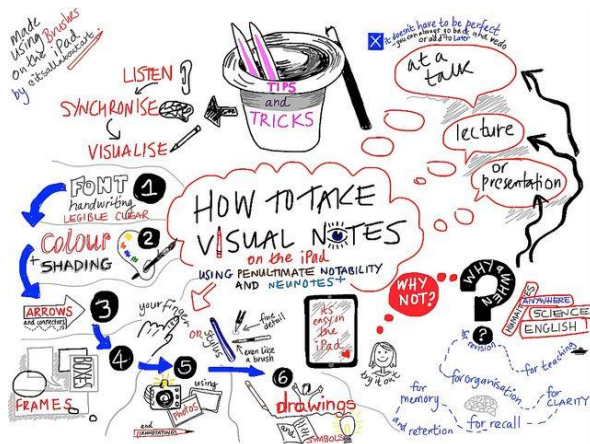 made
using Brushes
on the iPad
by @itsallaboutart
LISTEN
SYNCHRONISE
VISUALISE
TIPS
and
TRICKS
it doesn't have to be perfect
-you can always go back and redo
or add to later
at a
talk
lecture
or
presentation
HOW TO TAKE
VISUAL NOTES
on the iPad
USING PENULTIMATE NOTABILITY
AND NEUNOTES+
FONT 1
handwriting
LEGIBLE CLEAR
colour 2
+ SHADING
ARROWS
and connectors
3
4
BOXES
FRAMES
your finger
or stylus
fine
detail
even like
a brush
5
using
PHOTOS
and
6
drawings
and
SYMBOLS
its
easy in
the
iPad
WHY
NOT?
try it out
WHY & WHEN
?
HUMANITIES
ANYWHERE
SCIENCE
ENGLISH
revision
for teaching
for organisation
for
memory
and retention
for recall
for
CLARITY